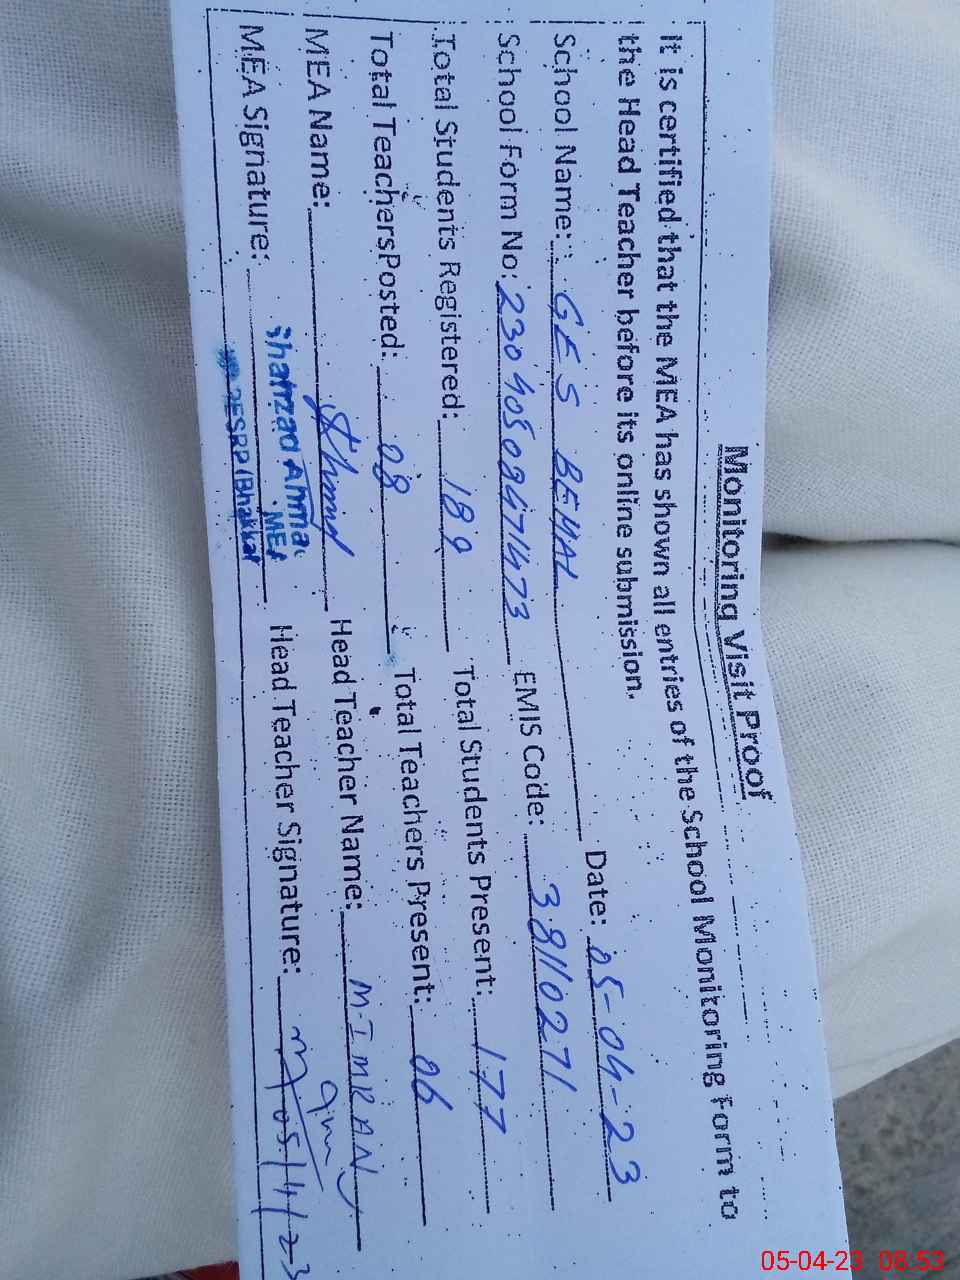 Monitoring Visit Proof
It is certified that the MEA has shown all entries of the School Monitoring Form to
the Head Teacher before its online submission.
School Name: GES BEHAL Date: 05-04-23
School Form No: EMIS Code: 38110271
Total Students Registered: 189 Total Students Present: 177
Total TeachersPosted: 08 Total Teachers Present: 06
MEA Name: Head Teacher Name: M-IMRAN
MEA Signature: Head Teacher Signature: 05/4/23
MEA
(Bhakkar
05-04-23 08:53